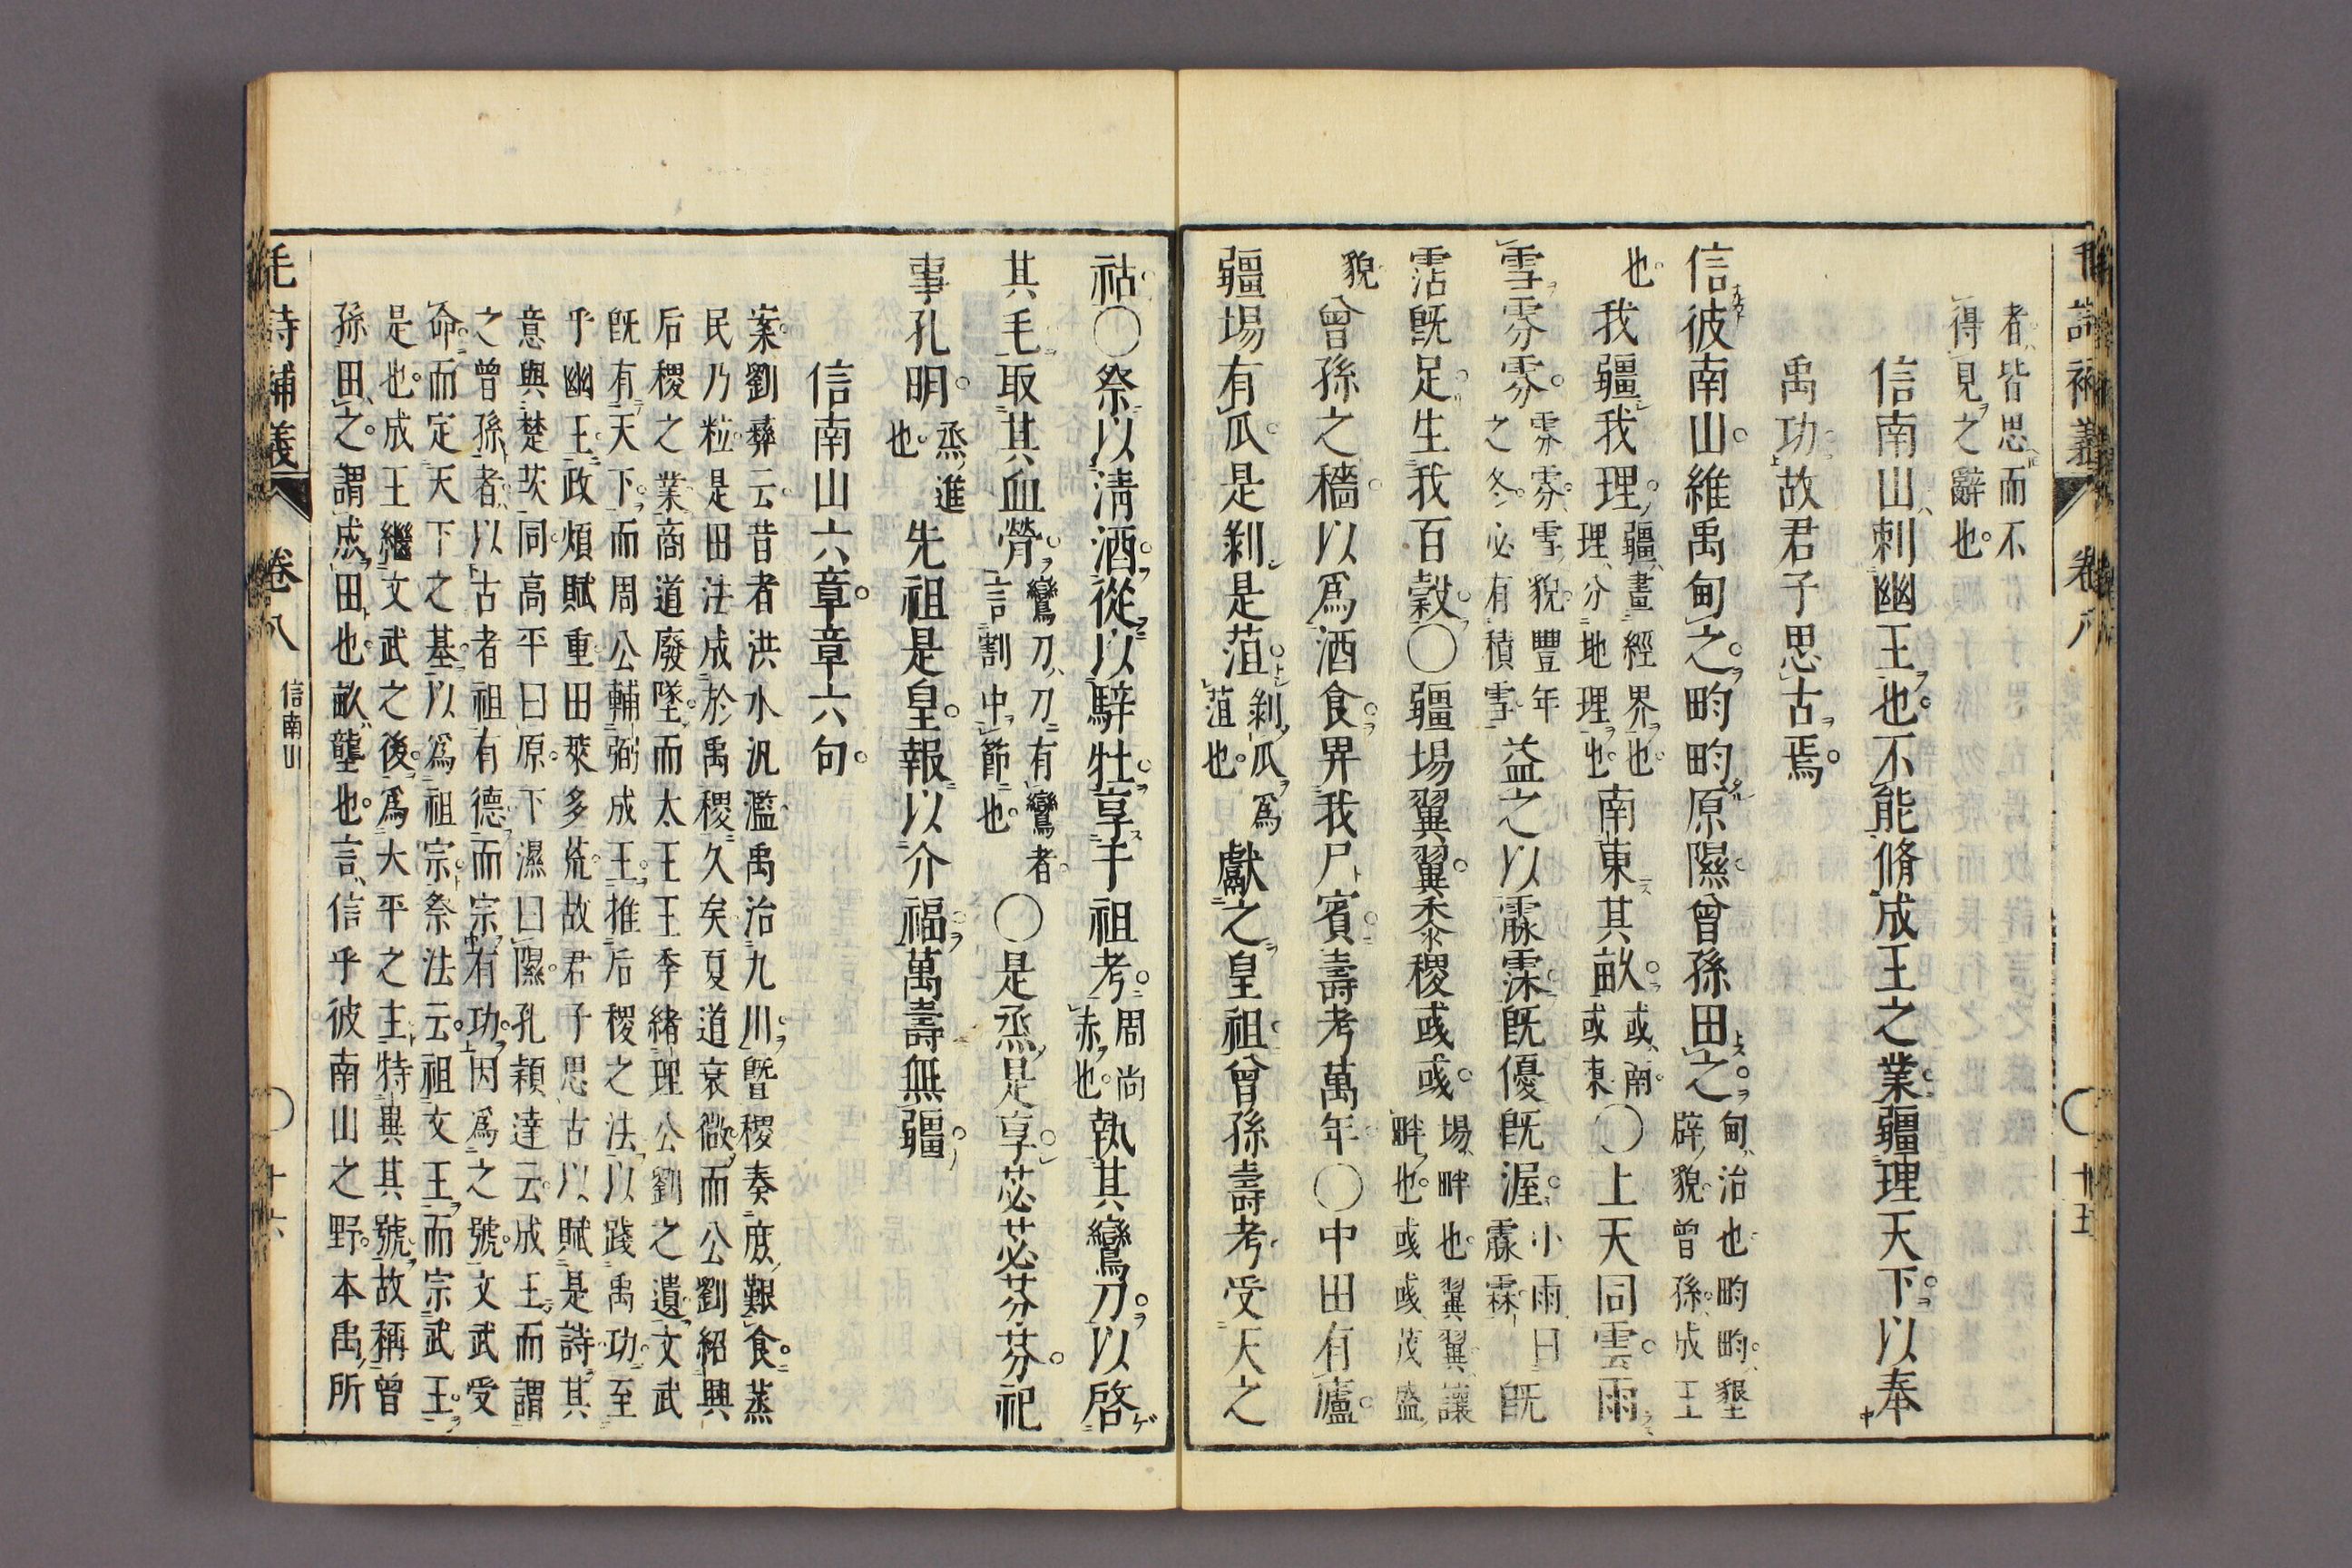 毛詩補義 卷八 ○ 廿五
者皆思而不
得見之辭也
信南山刺幽王也不能脩成王之業疆理天下以奉
禹功故君子思古焉
信彼南山維禹甸之畇畇原隰曾孫田之甸治也畇畇墾
辟貌曾孫成王
也我疆我理疆畫經界也
理分地理也南東其畝或南
或東○上天同雲雨
雪雰雰雰雰雪貌豐年
之冬必有積雪益之以霡霂既優既渥小雨曰
霡霂既
霑既足生我百穀○疆埸翼翼黍稷彧彧埸畔也翼翼讓
畔也彧彧茂盛
貌曾孫之穡以爲酒食畀我尸賓壽考萬年○中田有廬
疆埸有瓜是剝是菹剝瓜爲
菹也獻之皇祖曾孫壽考受天之
祜○祭以淸酒從以騂牡享于祖考周尚
赤也執其鸞刀以啓
其毛取其血膋鸞刀刀有鸞者
言割中節也○是烝是享苾苾芬芬祀
事孔明烝進
也先祖是皇報以介福萬壽無疆
信南山六章章六句
案劉彝云昔者洪水汎濫禹治九川曁稷奏庶艱食蒸
民乃粒是田法成於禹稷久矣夏道衰微而公劉紹興
后稷之業商道廢墜而太王王季緒理公劉之遺文武
既有天下而周公輔弼成王推后稷之法以踐禹功至
乎幽王政煩賦重田萊多荒故君子思古以賦是詩其
意與楚茨同高平曰原下濕曰隰孔穎達云成王而謂
之曾孫者以古者祖有德而宗有功因爲之號文武受
命而定天下之基以爲祖宗祭法云祖文王而宗武王
是也成王繼文武之後爲大平之主特異其號故稱曾
孫田之謂成田也畝壟也言信乎彼南山之野本禹所
毛詩補義 卷八 信南山 ○ 十六